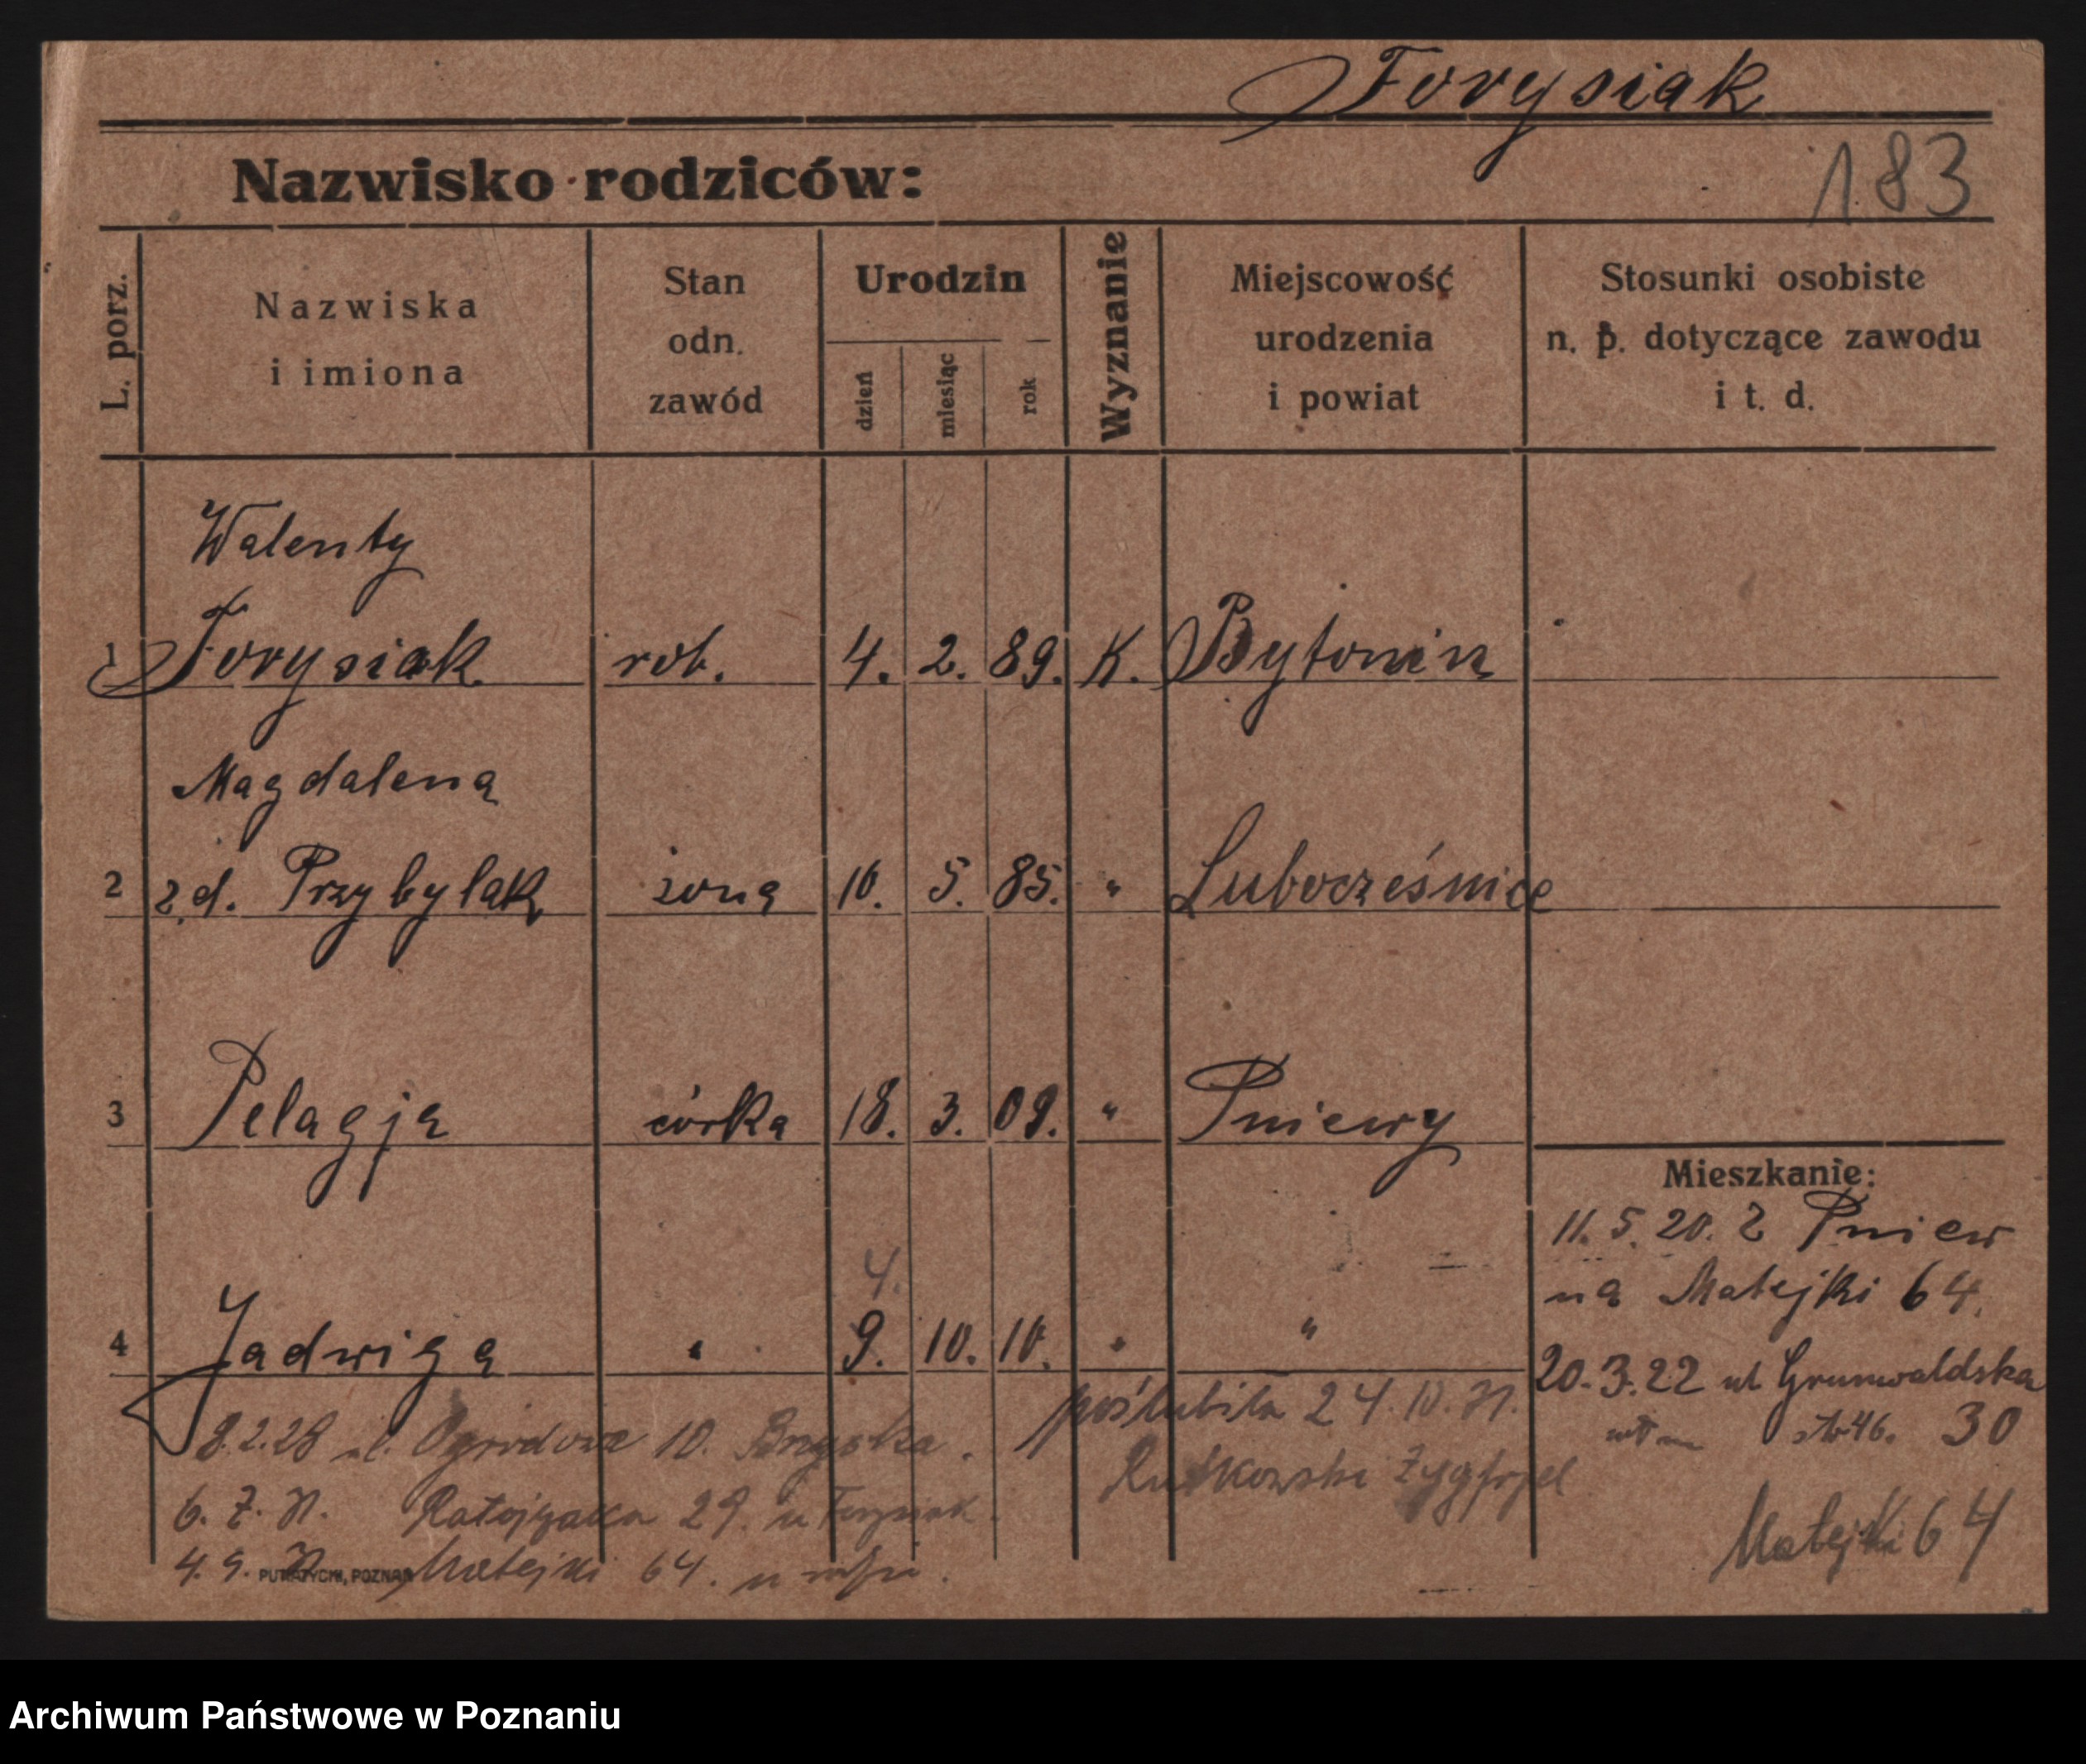 Forysiak
Nazwisko rodziców:
183
L. porz.
Nazwiska
i imiona
Stan
odn.
zawód
Urodzin
dzień
miesiąc
rok
Wyznanie
Miejscowość
urodzenia
i powiat
Stosunki osobiste
n. p. dotyczące zawodu
i t. d.
Walenty
1 Forysiak rob. 4. 2. 89. K. Bytonin
Magdalena
2 z d. Przybylak żona 10. 5. 85. " Lubocześnice
3 Pelagja córka 18. 3. 09. " Pniewy
4.
4 Jadwiga " 9. 10. 10. " "
Mieszkanie:
11. 5. 20. z Pniew
na Matejki 64.
20. 3. 22 ul Grunwaldska
30
Matejki 64
8.2.28 ul. Ogrodowa 10.
poślubiła 24. 10. 31.
Rutkowski Zygfryd
6. 7. 31. Ratajczaka 29. u Forysiak.
4. 9. 31 Matejki 64. u
PUTIATYCKI, POZNAŃ
Archiwum Państwowe w Poznaniu